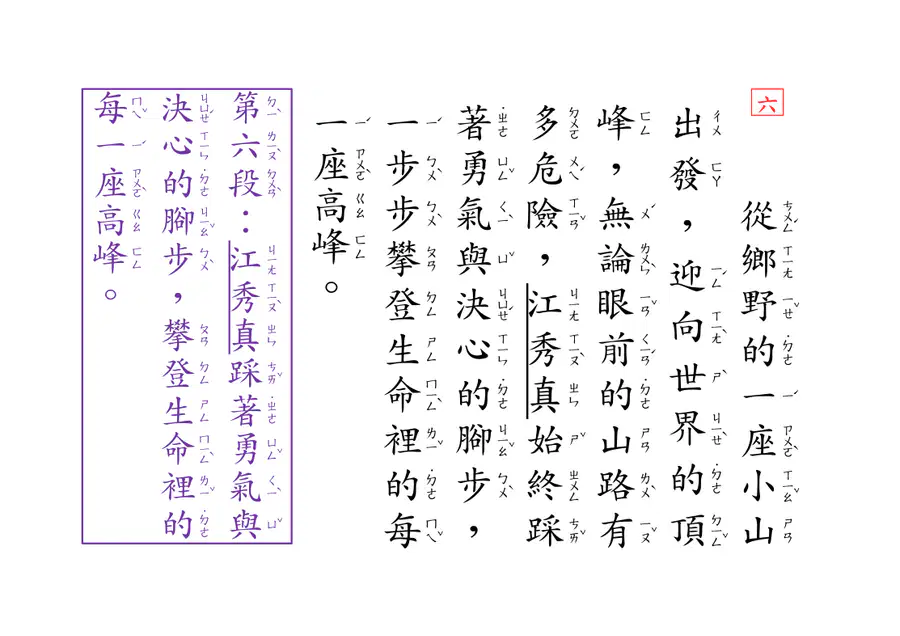 六
從鄉野的一座小山
出發，迎向世界的頂
峰，無論眼前的山路有
多危險，江秀真始終踩
著勇氣與決心的腳步，
一步步攀登生命裡的每
一座高峰。
第六段：江秀真踩著勇氣與
決心的腳步，攀登生命裡的
每一座高峰。